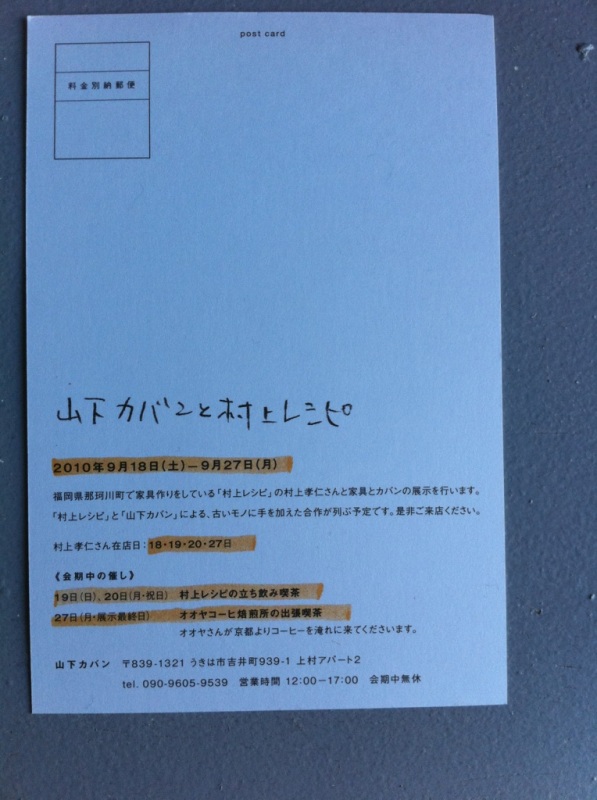 post card
料金別納郵便
山下カバンと村上レシピ
2010年9月18日(土)－9月27日(月)
福岡県那珂川町で家具作りをしている「村上レシピ」の村上孝仁さんと家具とカバンの展示を行います。
「村上レシピ」と「山下カバン」による、古いモノに手を加えた合作が列ぶ予定です。是非ご来店ください。
村上孝仁さん在店日：18・19・20・27日
《会期中の催し》
19日(日)、20日(月・祝日)　村上レシピの立ち飲み喫茶
27日(月・展示最終日)　オオヤコーヒ焙煎所の出張喫茶
オオヤさんが京都よりコーヒーを淹れに来てくださいます。
山下カバン　〒839-1321 うきは市吉井町939-1 上村アパート2
tel. 090-9605-9539　営業時間 12:00－17:00　会期中無休